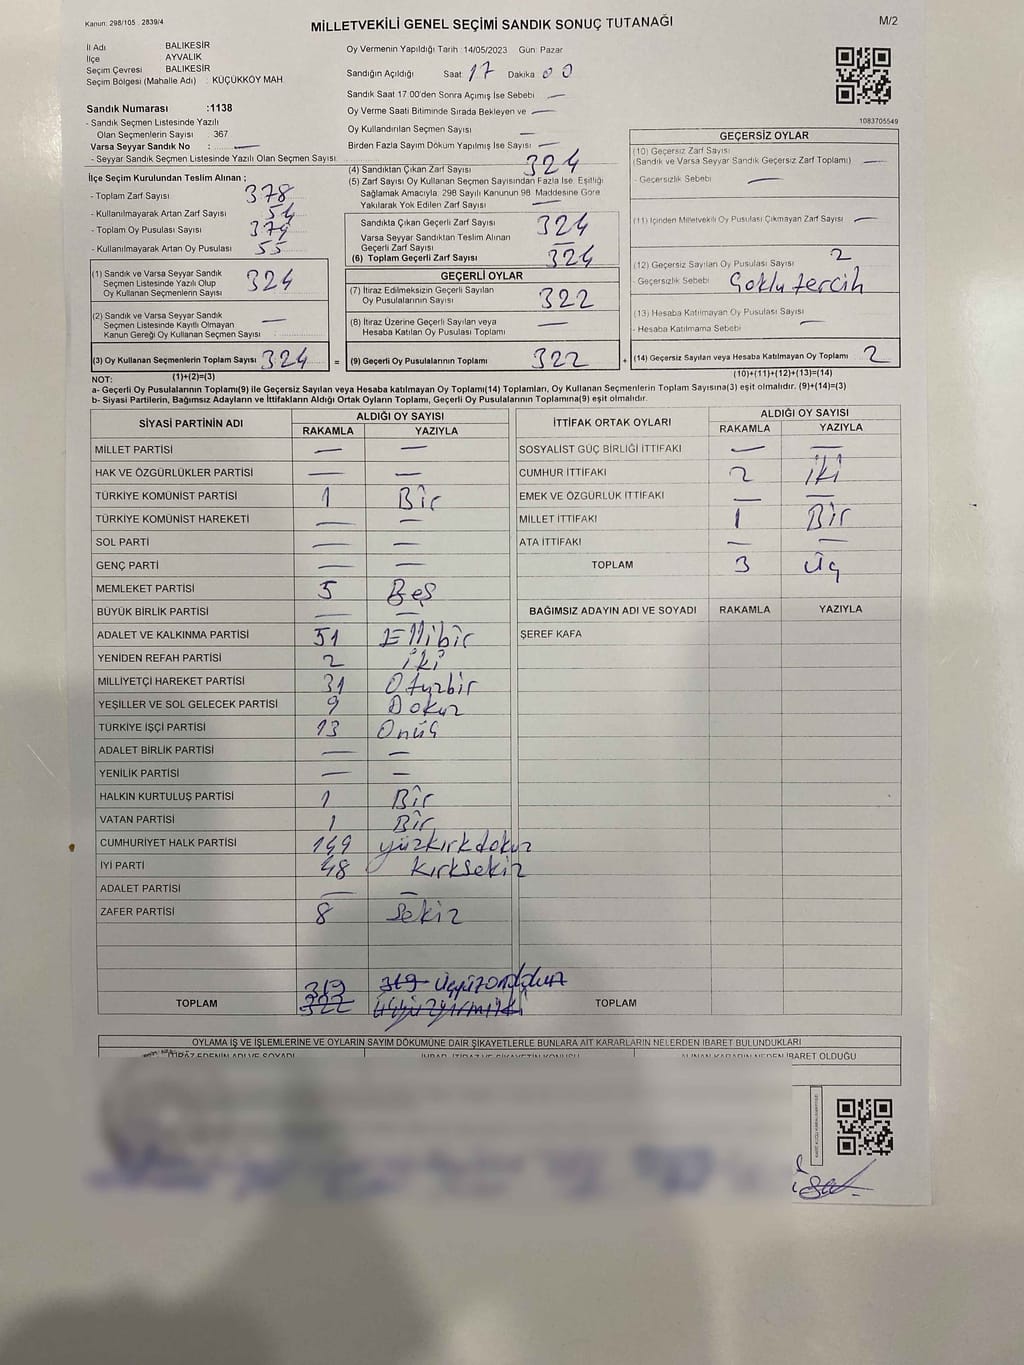 Kanun: 298/105 . 2839/4
MİLLETVEKİLİ GENEL SEÇİMİ SANDIK SONUÇ TUTANAĞI
M/2
İl Adı BALIKESİR
İlçe AYVALIK
Seçim Çevresi BALIKESİR
Seçim Bölgesi (Mahalle Adı) : KÜÇÜKKÖY MAH.
Sandık Numarası :1138
- Sandık Seçmen Listesinde Yazılı
Olan Seçmenlerin Sayısı : 367
Varsa Seyyar Sandık No : —
- Seyyar Sandık Seçmen Listesinde Yazılı Olan Seçmen Sayısı :
Oy Vermenin Yapıldığı Tarih : 14/05/2023 Gün: Pazar
Sandığın Açıldığı Saat 17 Dakika 00
Sandık Saat 17.00'den Sonra Açımış İse Sebebi —
Oy Verme Saati Bitiminde Sırada Bekleyen ve —
Oy Kullandırılan Seçmen Sayısı —
Birden Fazla Sayım Döküm Yapılmış İse Sayısı —
1083705549
İlçe Seçim Kurulundan Teslim Alınan ;
- Toplam Zarf Sayısı 378
- Kullanılmayarak Artan Zarf Sayısı 54
- Toplam Oy Pusulası Sayısı 379
- Kullanılmayarak Artan Oy Pusulası 55
(1) Sandık ve Varsa Seyyar Sandık
Seçmen Listesinde Yazılı Olup
Oy Kullanan Seçmenlerin Sayısı 324
(2) Sandık ve Varsa Seyyar Sandık
Seçmen Listesinde Kayıtlı Olmayan
Kanun Gereği Oy Kullanan Seçmen Sayısı : —
(3) Oy Kullanan Seçmenlerin Toplam Sayısı 324
(1)+(2)=(3)
(4) Sandıktan Çıkan Zarf Sayısı 324
(5) Zarf Sayısı Oy Kullanan Seçmen Sayısından Fazla İse, Eşitliği
Sağlamak Amacıyla, 298 Sayılı Kanunun 98. Maddesine Göre
Yakılarak Yok Edilen Zarf Sayısı —
Sandıkta Çıkan Geçerli Zarf Sayısı 324
Varsa Seyyar Sandıktan Teslim Alınan
Geçerli Zarf Sayısı —
(6) Toplam Geçerli Zarf Sayısı 324
GEÇERLİ OYLAR
(7) İtiraz Edilmeksizin Geçerli Sayılan
Oy Pusulalarının Sayısı 322
(8) İtiraz Üzerine Geçerli Sayılan veya
Hesaba Katılan Oy Pusulası Toplamı —
= (9) Geçerli Oy Pusulalarının Toplamı 322
GEÇERSİZ OYLAR
(10) Geçersiz Zarf Sayısı
(Sandık ve Varsa Seyyar Sandık Geçersiz Zarf Toplamı) —
- Geçersizlik Sebebi —
(11) İçinden Milletvekili Oy Pusulası Çıkmayan Zarf Sayısı —
(12) Geçersiz Sayılan Oy Pusulası Sayısı 2
- Geçersizlik Sebebi Çoklu tercih
(13) Hesaba Katılmayan Oy Pusulası Sayısı
- Hesaba Katılmama Sebebi —
+ (14) Geçersiz Sayılan veya Hesaba Katılmayan Oy Toplamı 2
(10)+(11)+(12)+(13)=(14)
NOT:
a- Geçerli Oy Pusulalarının Toplamı(9) ile Geçersiz Sayılan veya Hesaba katılmayan Oy Toplamı(14) Toplamları, Oy Kullanan Seçmenlerin Toplam Sayısına(3) eşit olmalıdır. (9)+(14)=(3)
b- Siyasi Partilerin, Bağımsız Adayların ve İttifakların Aldığı Ortak Oyların Toplamı, Geçerli Oy Pusulalarının Toplamına(9) eşit olmalıdır.
SİYASİ PARTİNİN ADI ALDIĞI OY SAYISI
RAKAMLA YAZIYLA
MİLLET PARTİSİ — —
HAK VE ÖZGÜRLÜKLER PARTİSİ — —
TÜRKİYE KOMÜNİST PARTİSİ 1 Bir
TÜRKİYE KOMÜNİST HAREKETİ — —
SOL PARTİ — —
GENÇ PARTİ — —
MEMLEKET PARTİSİ 5 Beş
BÜYÜK BİRLİK PARTİSİ — —
ADALET VE KALKINMA PARTİSİ 51 Ellibir
YENİDEN REFAH PARTİSİ 2 iki
MİLLİYETÇİ HAREKET PARTİSİ 31 Otuzbir
YEŞİLLER VE SOL GELECEK PARTİSİ 9 Dokuz
TÜRKİYE İŞÇİ PARTİSİ 13 Onüç
ADALET BİRLİK PARTİSİ — —
YENİLİK PARTİSİ — —
HALKIN KURTULUŞ PARTİSİ 1 Bir
VATAN PARTİSİ 1 Bir
CUMHURİYET HALK PARTİSİ 149 yüzkırkdokuz
İYİ PARTİ 48 kırksekiz
ADALET PARTİSİ — —
ZAFER PARTİSİ 8 sekiz
319 319 üçyüzondokuz
TOPLAM 322 üçyüzyirmiiki
İTTİFAK ORTAK OYLARI ALDIĞI OY SAYISI
RAKAMLA YAZIYLA
SOSYALİST GÜÇ BİRLİĞİ İTTİFAKI — —
CUMHUR İTTİFAKI 2 iki
EMEK VE ÖZGÜRLÜK İTTİFAKI — —
MİLLET İTTİFAKI 1 Bir
ATA İTTİFAKI — —
TOPLAM 3 üç
BAĞIMSIZ ADAYIN ADI VE SOYADI RAKAMLA YAZIYLA
ŞEREF KAFA
TOPLAM
OYLAMA İŞ VE İŞLEMLERİNE VE OYLARIN SAYIM DÖKÜMÜNE DAİR ŞİKAYETLERLE BUNLARA AİT KARARLARIN NELERDEN İBARET BULUNDUKLARI
İTİRAZ EDENİN ADI VE SOYADI İHBAR, İTİRAZ VE ŞİKAYETİN KONUSU ALINAN KARARIN NEDEN İBARET OLDUĞU